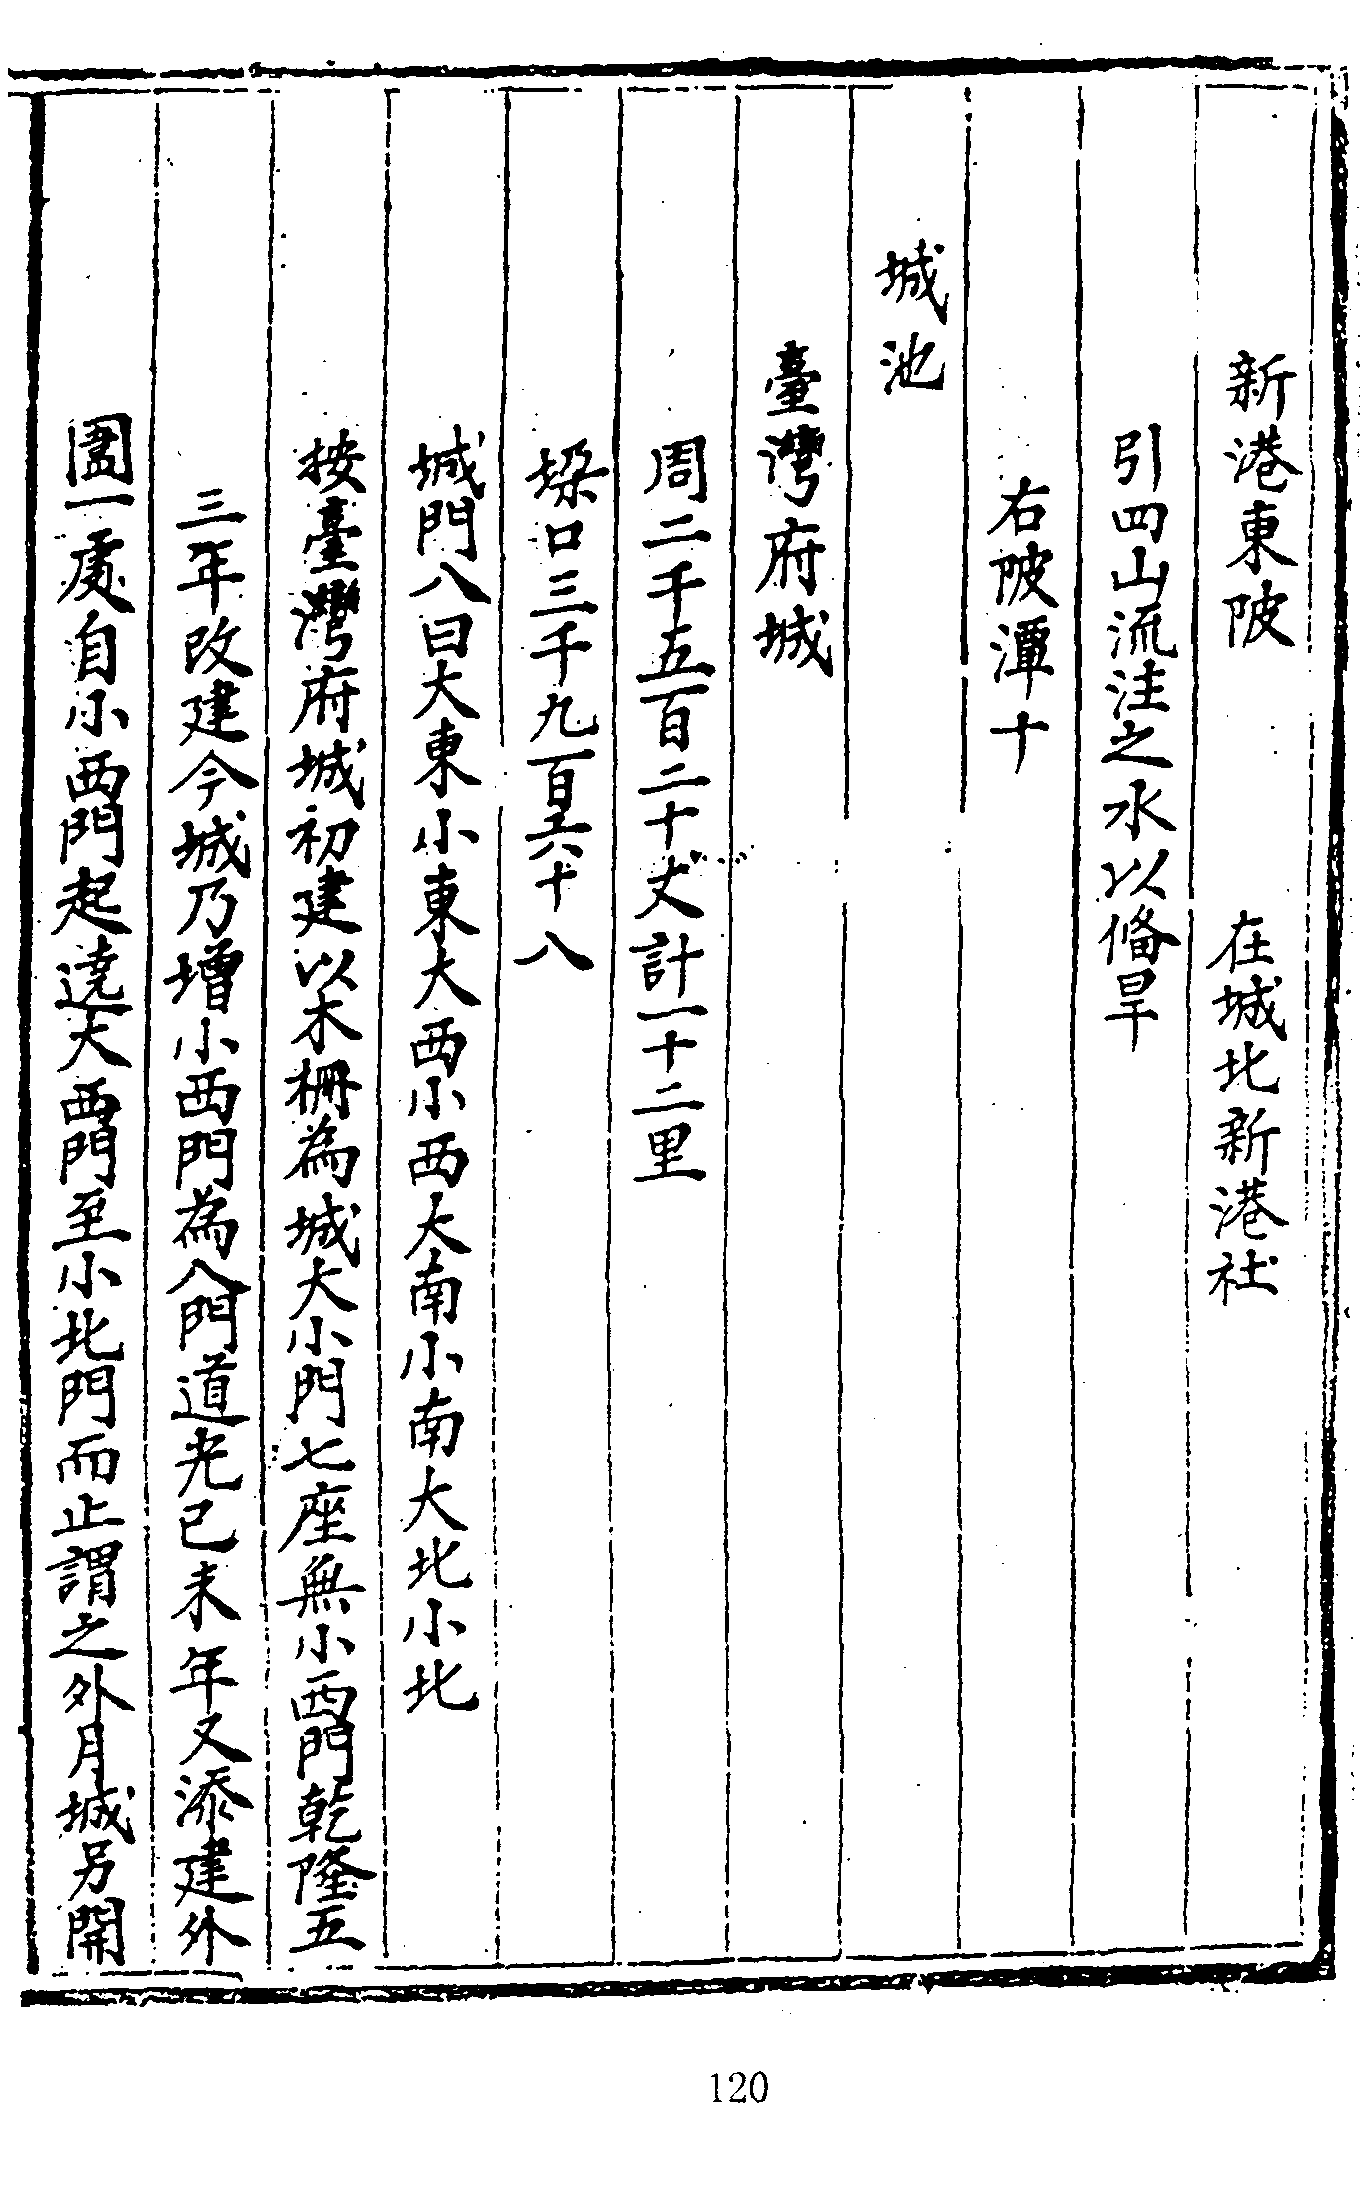 新港東陂　　在城北新港社
引四山流洼之水以俻旱
右陂潭十
城池
臺灣府城
周二千五百二十丈計一十二里
垜口三千九百六十八
城門八曰大東小東大西小西大南小南大北小北
按臺灣府城初建以木柵為城大小門七座無小西門乾隆五
三年改建今城乃增小西門為八門道光己未年又添建外
圍一處自小西門起遶大西門至小北門而止謂之外月城另開
120